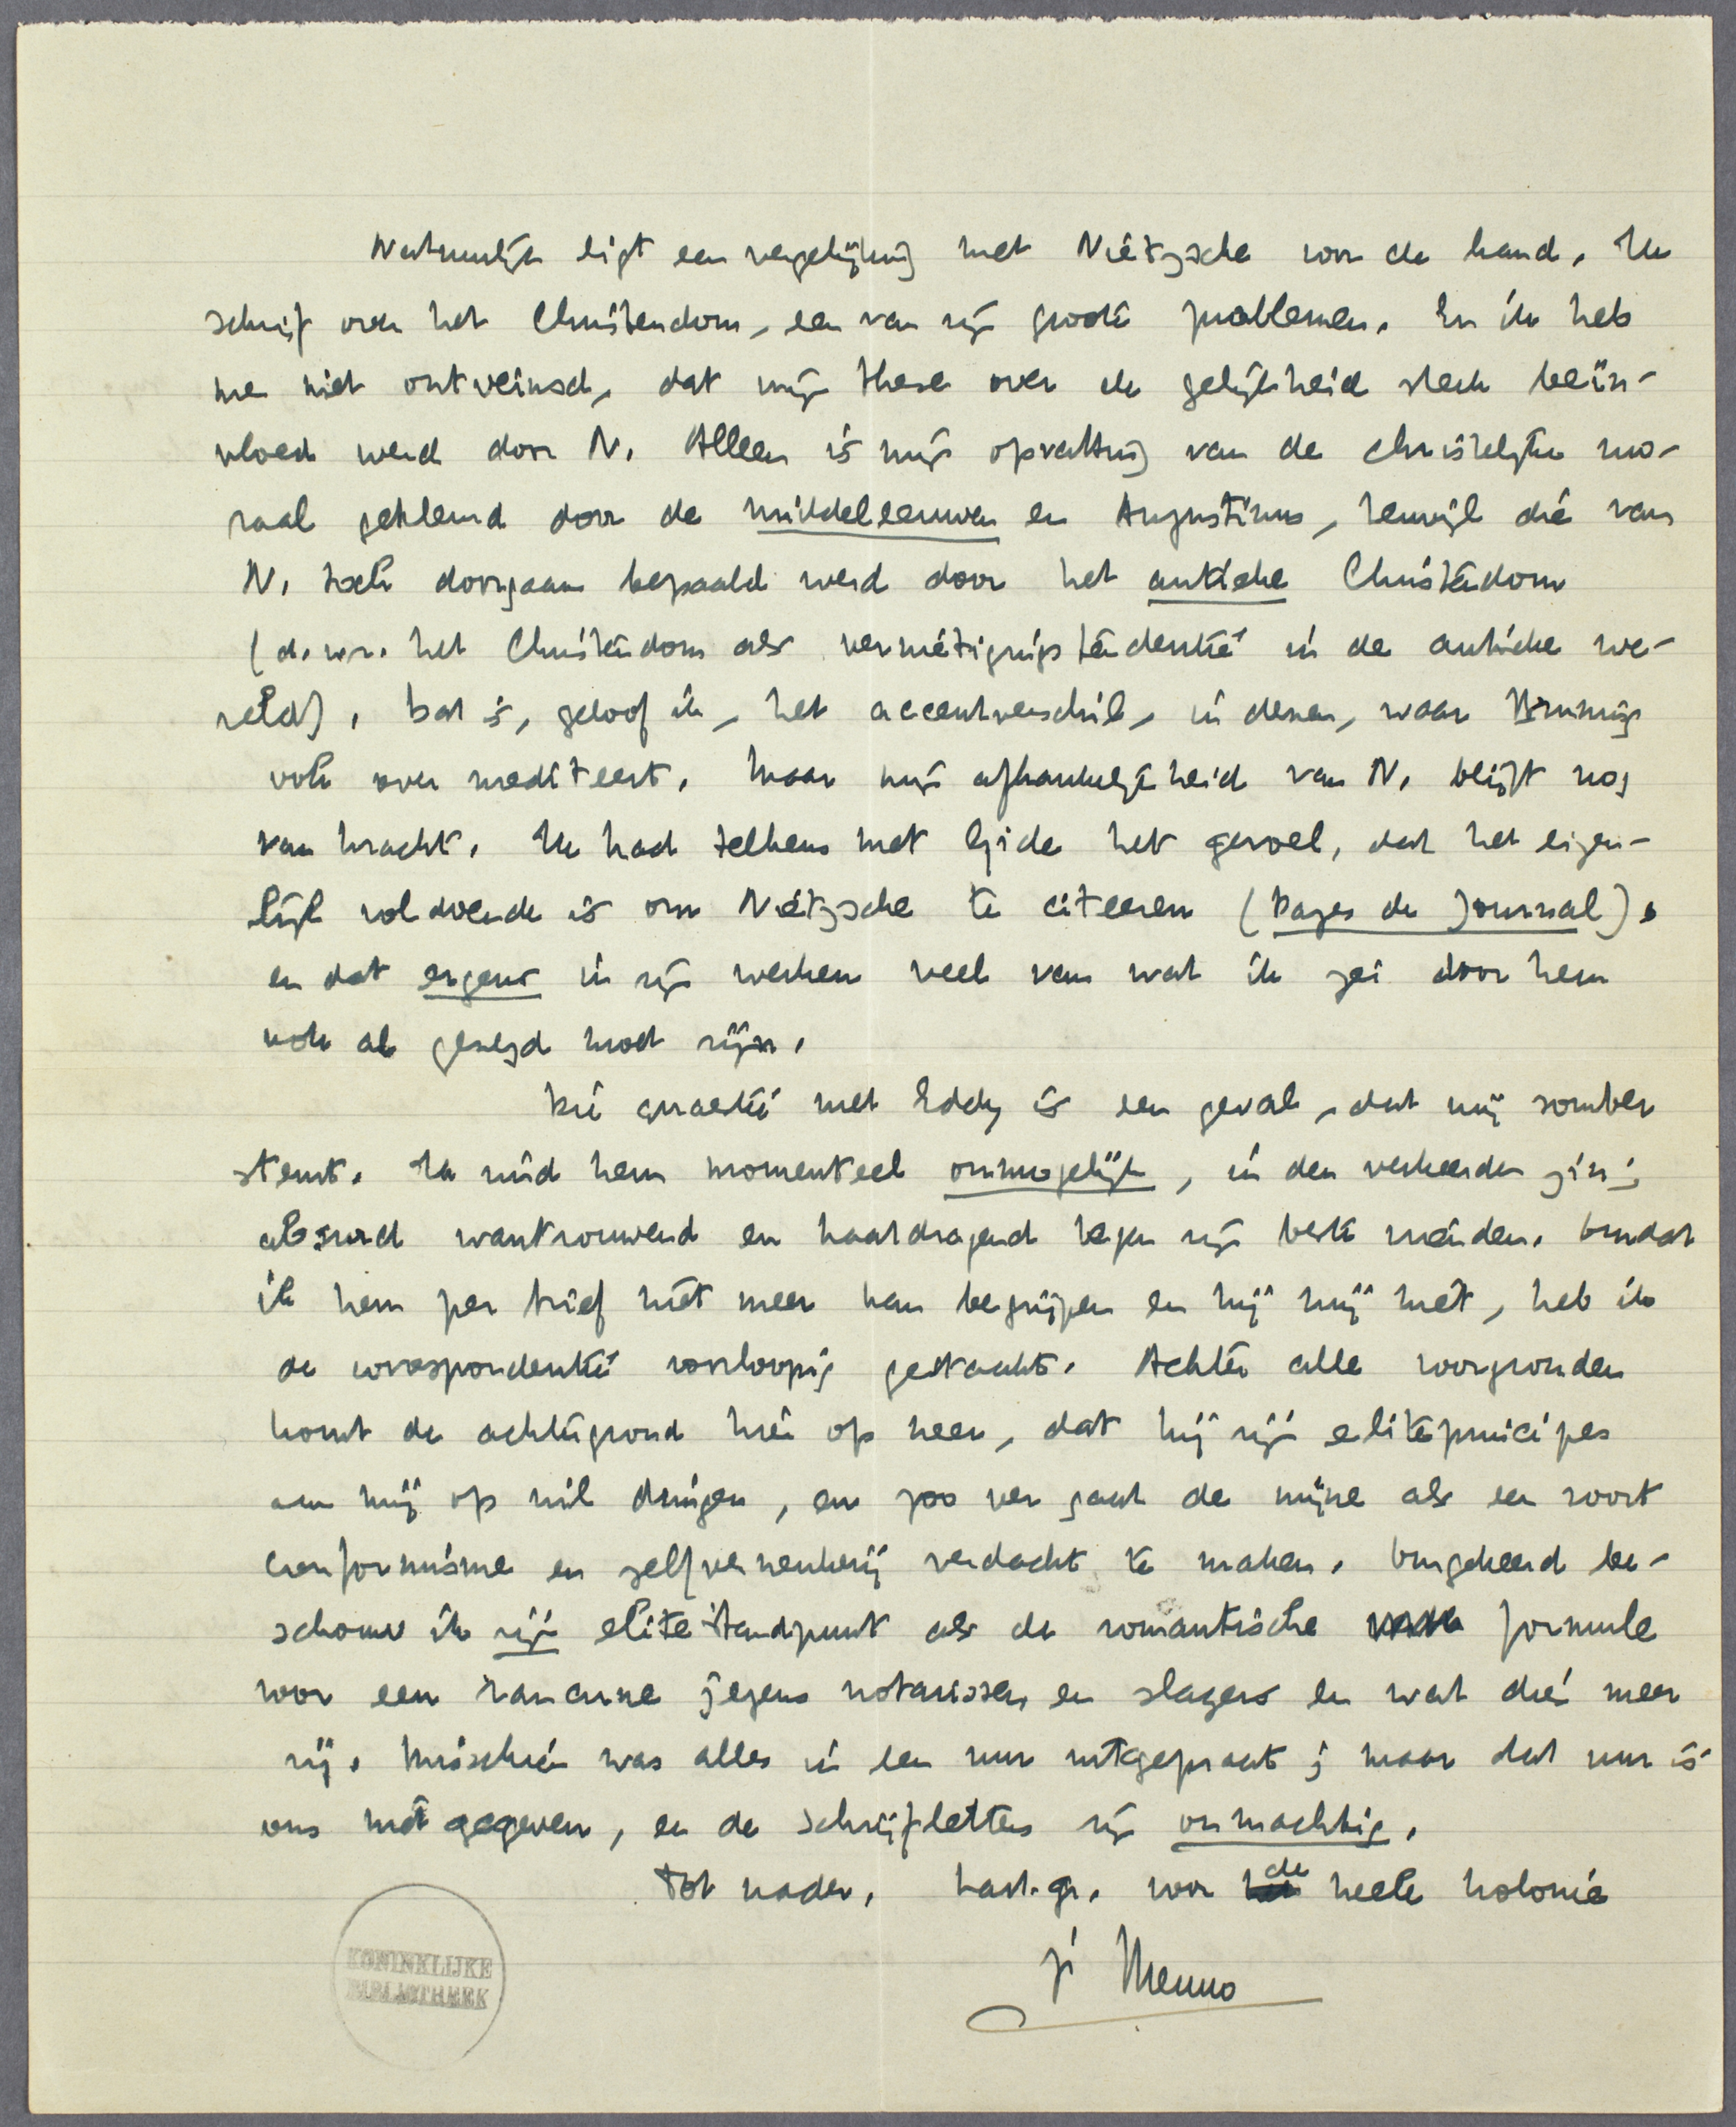 Natuurlijk ligt een vergelijking met Nietzsche voor de hand. Ik
schrijf over het Christendom, een van zijn groote problemen. En ik heb
me niet ontveinsd, dat mijn these over de gelijkheid sterk beïn-
vloed werd door N. Alleen is mijn opvatting van de christelijke mo-
raal gekleurd door de middeleeuwen en Augustinus, terwijl die van
N. toch doorgaans bepaald werd door het antieke Christendom
(d.w.z. het Christendom als vernietigingstendentie in de antieke we-
reld). Dat is, geloof ik, het accentverschil, in dezen, waar Bruning
ook over mediteert. Maar mijn afhankelijkheid van N. blijft nog
van kracht. Ik had telkens met Gide het gevoel, dat het eigen-
lijk voldoende is om Nietzsche te citeeren (Pages de Journal),
en dat ergens in zijn werken veel van wat ik zei door hem
ook al gezegd moet zijn.
Die quaestie met Eddy is een geval, dat mij somber
stemt. Ik vind hem momenteel onmogelijk, in den verkeerden zin;
absurd wantrouwend en haatdragend tegen zijn beste vrienden. Omdat
ik hem per brief niet meer kan begrijpen en hij mij niet, heb ik
de correspondentie voorloopig gestaakt. Achter alle voorgronden
komt de achtergrond hier op neer, dat hij zijn eliteprincipes
aan mij op wil dringen, en zoo ver gaat de mijne als een soort
conformisme en zelfverneukerij verdacht te maken. Omgekeerd be-
schouw ik zijn elitestandpunt als de romantische formule
voor een rancune jegens notarissen en slagers en wat dies meer
zij. Misschien was alles in een uur uitgepraat; maar dat uur is
ons niet gegeven, en de schrijfletters zijn onmachtig.
Tot nader, hart. gr. voor de heele kolonie
je Menno
KONINKLIJKE
BIBLIOTHEEK